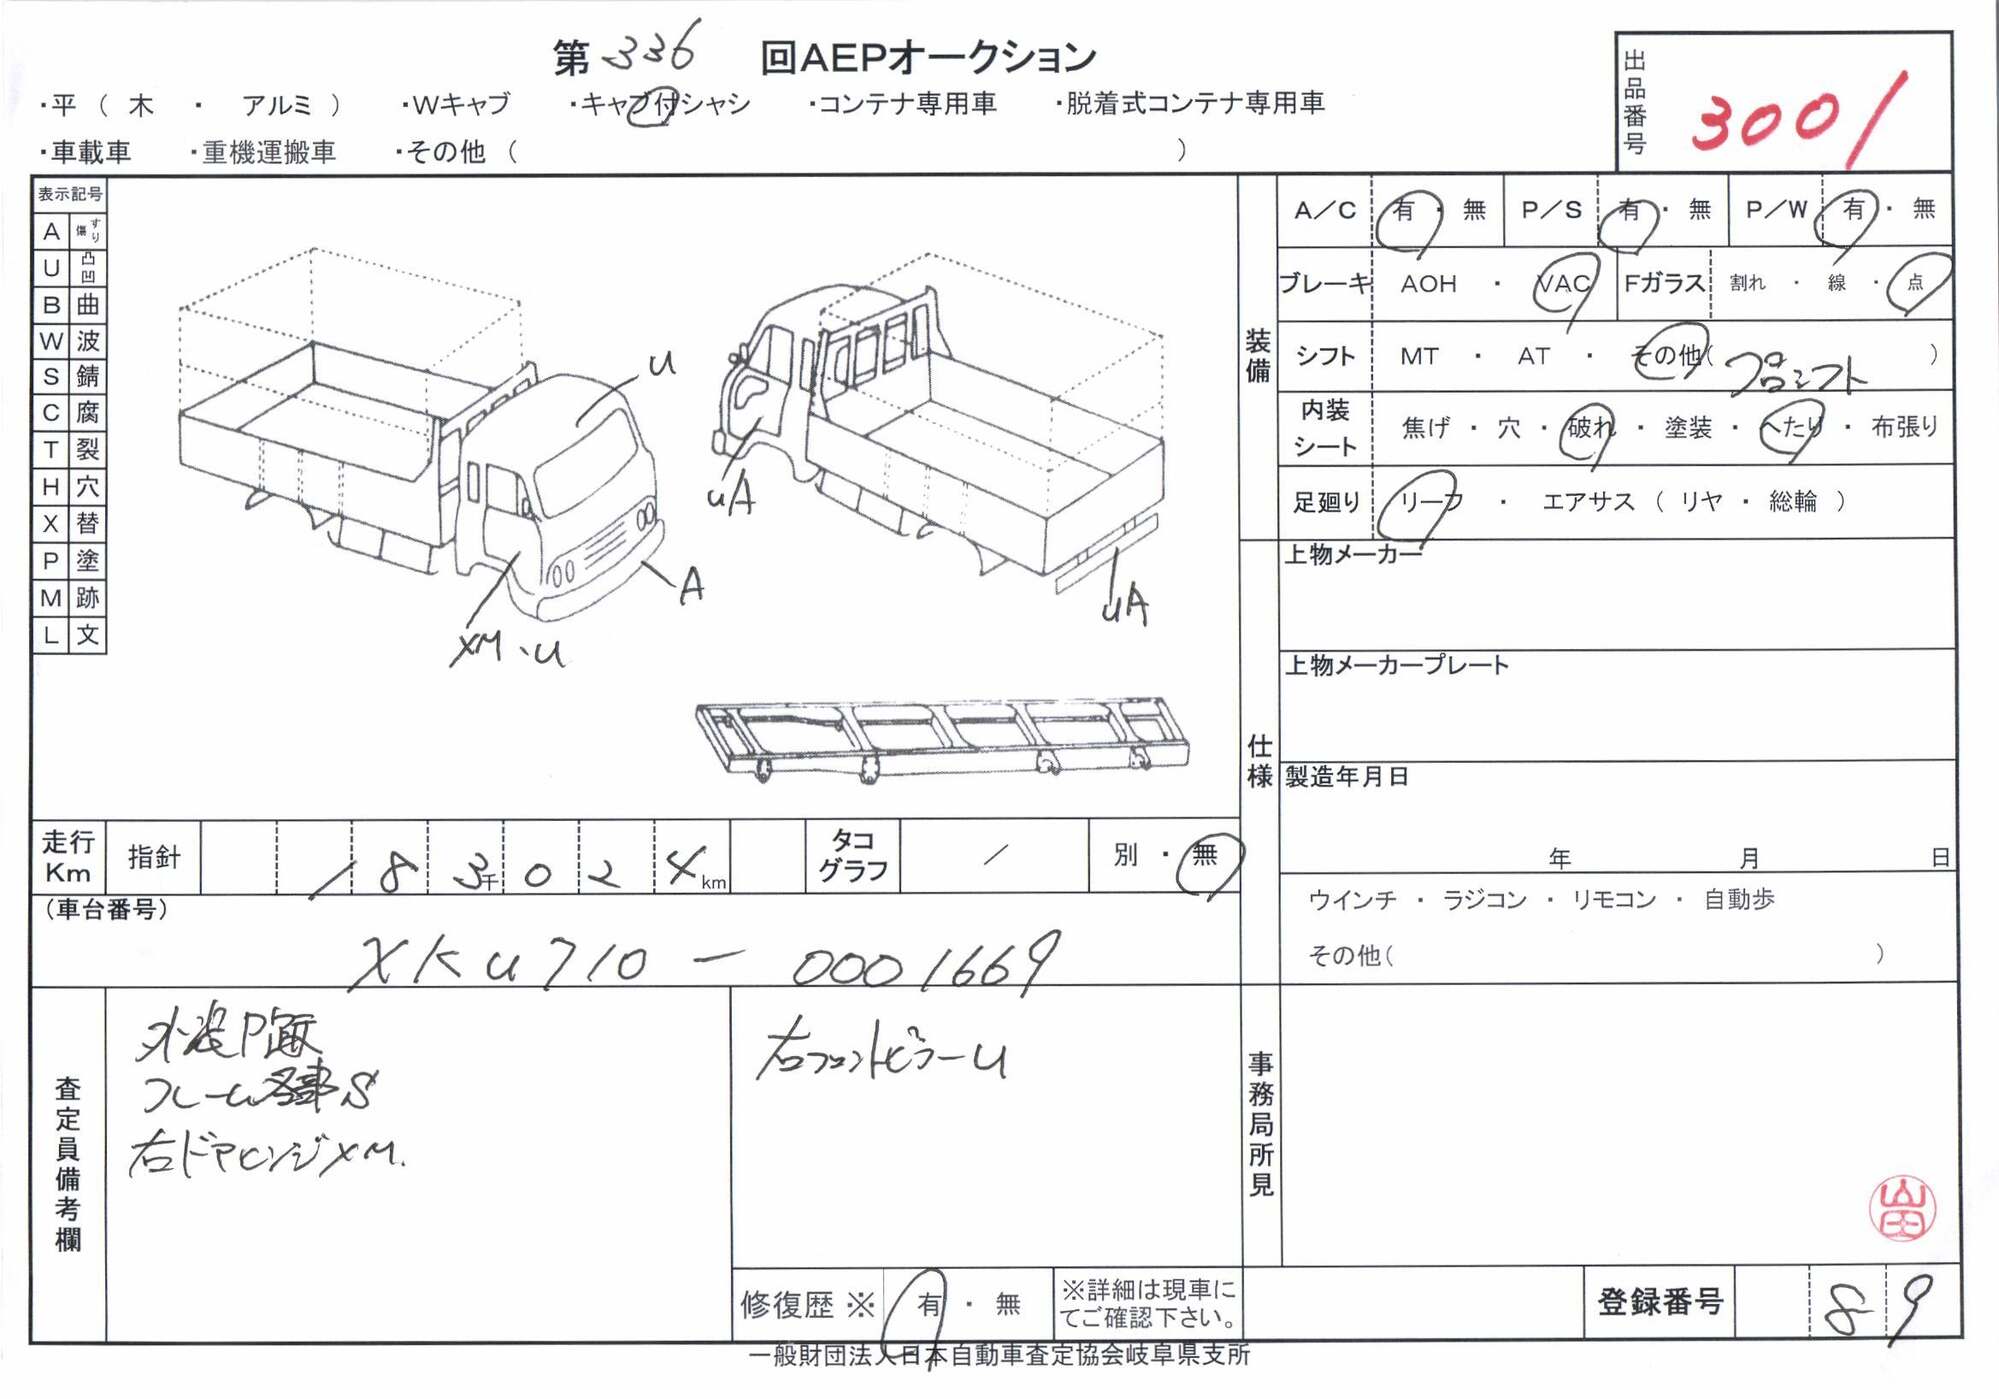 第 336 回AEPオークション
出品番号 3001
・平 ( 木 ・ アルミ ) ・Wキャブ ・キャブ付シャシ ・コンテナ専用車 ・脱着式コンテナ専用車
・車載車 ・重機運搬車 ・その他 ( )
表示記号
A すり傷
U 凸凹
B 曲
W 波
S 錆
C 腐
T 裂
H 穴
X 替
P 塗
M 跡
L 文
U
A
XM、U
UA
UA
装備
A/C 有・無 P/S 有・無 P/W 有・無
ブレーキ AOH ・ VAC Fガラス 割れ ・ 線 ・ 点
シフト MT ・ AT ・ その他( プロシフト )
内装シート 焦げ ・ 穴 ・ 破れ ・ 塗装 ・ へたり ・ 布張り
足廻り リーフ ・ エアサス ( リヤ ・ 総輪 )
仕様
上物メーカー
上物メーカープレート
製造年月日
年 月 日
ウインチ ・ ラジコン ・ リモコン ・ 自動歩
その他( )
走行Km 指針 183千024km タコグラフ / 別 ・ 無
(車台番号)
XKU710-0001669
査定員備考欄
外装P歴
フレーム各部S
右ドアヒンジXM.
右フロントピラーU
修復歴 ※ 有 ・ 無
※詳細は現車にてご確認下さい。
事務局所見
山田
登録番号 89
一般財団法人日本自動車査定協会岐阜県支所